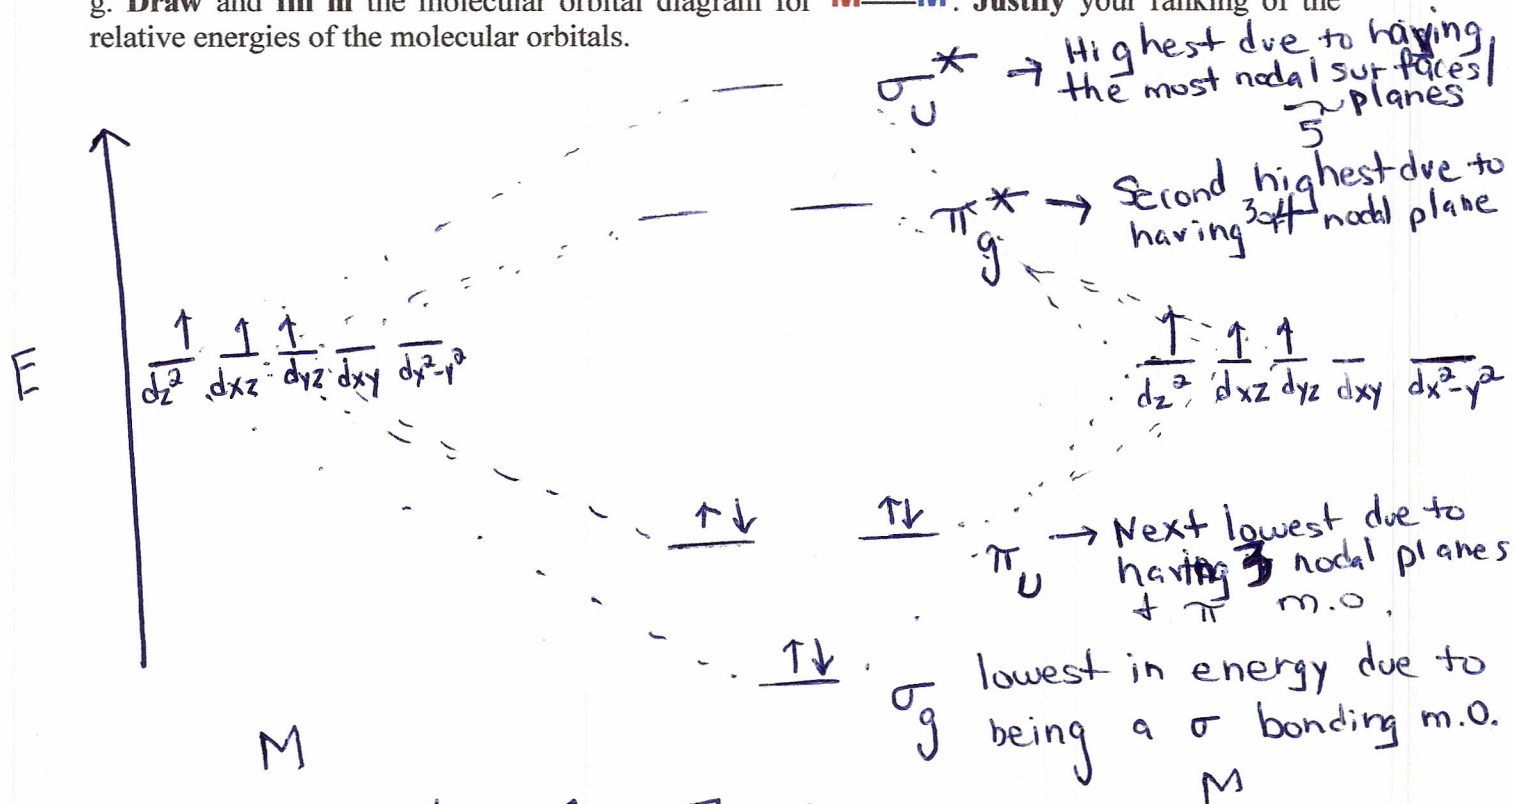 g. Draw and fill in the molecular orbital diagram for M——M. Justify your ranking of the
relative energies of the molecular orbitals.
σ*u → Highest due to having
the most nodal surfaces/
planes
5
π*g → Second highest due to
having 3 nodal plane
E
↑ ↑ ↑
dz² dxz dyz dxy dx²-y²
↑ ↑ ↑
dz² dxz dyz dxy dx²-y²
↑↓ ↑↓
πu → Next lowest due to
having 3 nodal planes
+ π m.o.
↑↓
σg lowest in energy due to
being a σ bonding m.o.
M
M